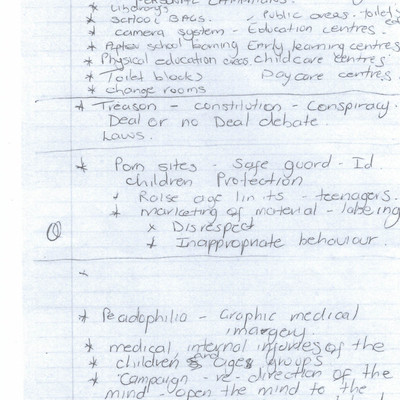 * Lindrays
* School BAGS. / Public areas. toilet
* camera system - Education centres.
* school learning Early learning centres
* Physical education areas childcare centres.
* Toilet blocks Daycare centres.
* change rooms
* Treason - constitution - Conspiracy.
Deal or no Deal debate.
Laws.
* Porn sites - Safe guard - Id
children Protection
* Raise age limits - teenagers.
* marketing of material - labeling
x Disrespect
* Inappropriate behaviour.
*
* Peadophilia - Graphic medical
imargery.
* medical internal injuries of the
* children and Ages groups
* Campaign - re-direction of the
mind - open the mind to the